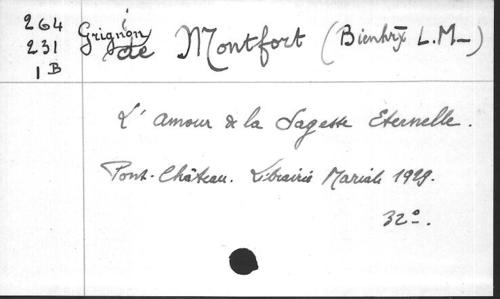 264
231
1 B
Grignon
de Montfort (Bienhrx L.M–)
L'amour de la Sagesse Eternelle.
Pont-Château. Librairie Mariale 1929.
32º.